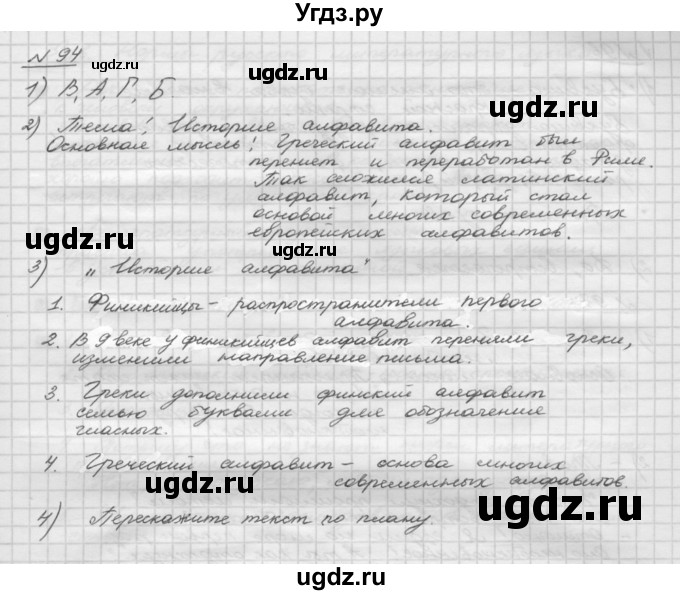 Угдз.ру
№ 94
1) В, А, Г, Б.
2) Тема: История алфавита.
Основная мысль: Греческий алфавит был
перенят и переработан в Риме.
Так сложился латинский
алфавит, который стал
основой многих современных
европейских алфавитов.
3) "История алфавита"
1. Финикийцы - распространители первого
алфавита.
2. В 9 веке у финикийцев алфавит переняли греки,
изменили направление письма.
3. Греки дополнили финский алфавит
семью буквами для обозначение
гласных.
4. Греческий алфавит - основа многих
современных алфавитов.
4) Перескажите текст по плану.
ugdz.ru
ugdz.ru
ugdz.ru
ugdz.ru
ugdz.ru
ugdz.ru
ugdz.ru
ugdz.ru
ugdz.ru